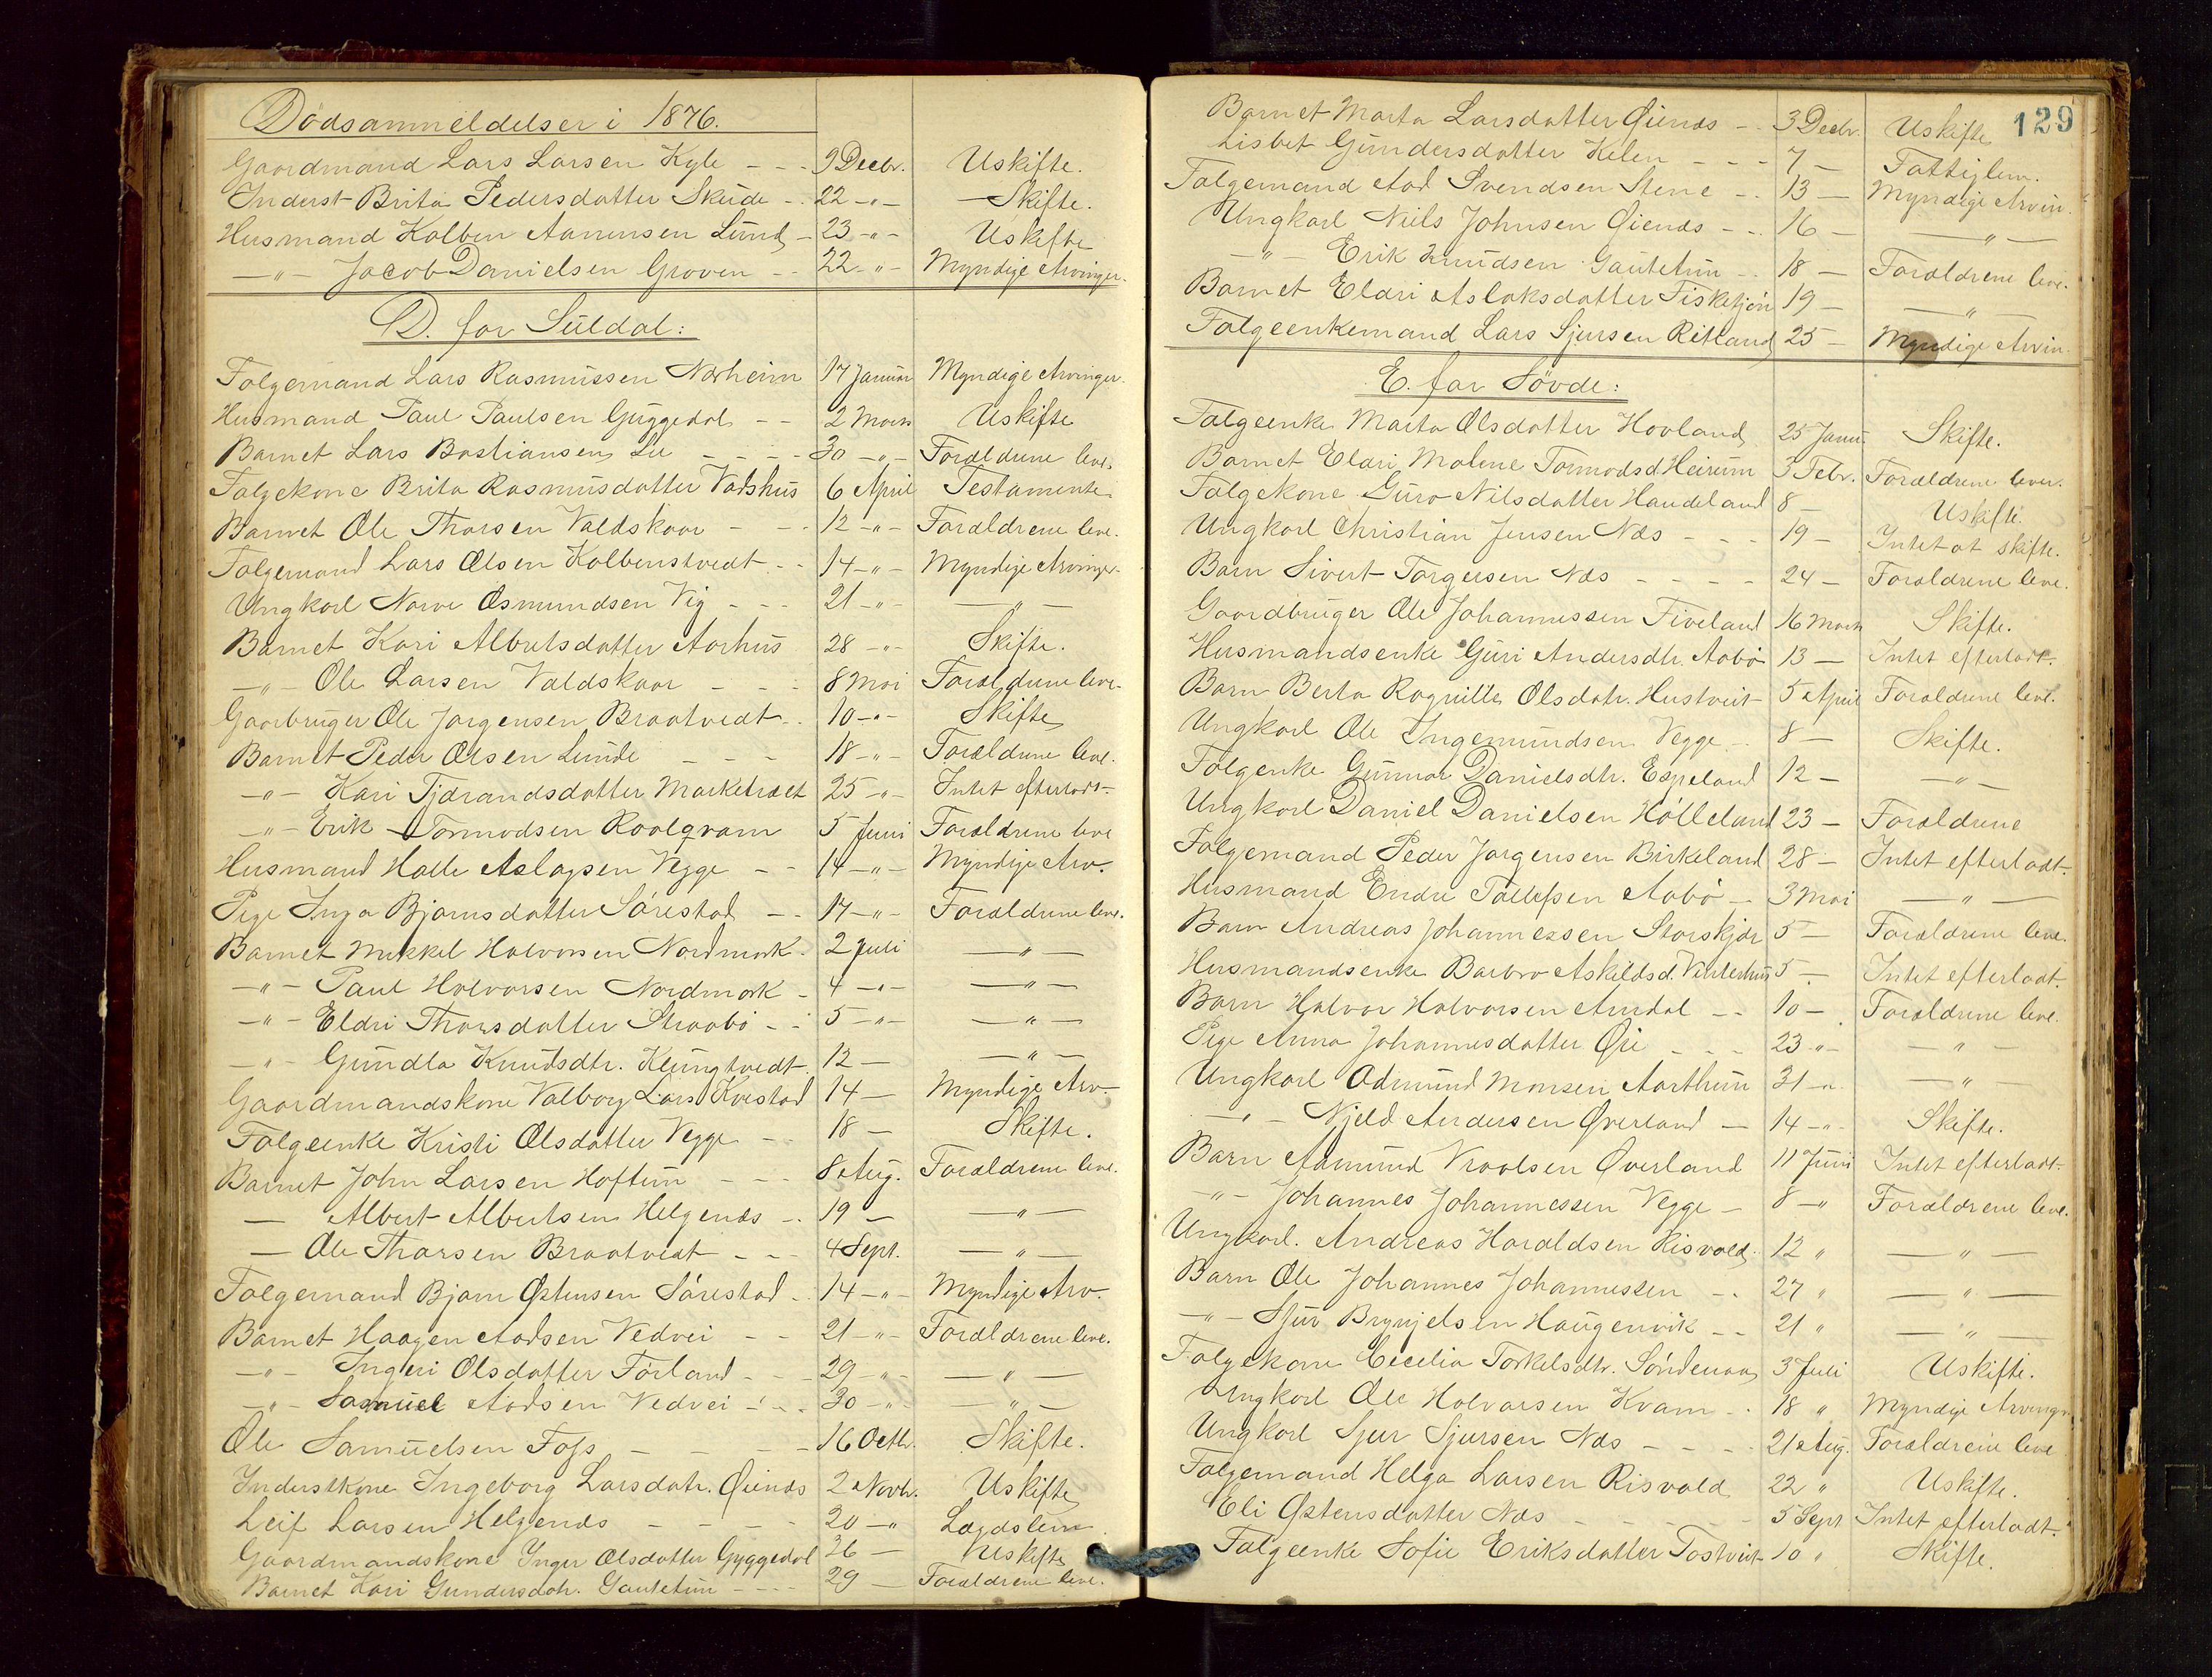 Dödsanmeldelser i 1876.
Gaardmand Lars Larsen Kyle - - - 9 Decbr. Uskifte.
Inderst Brita Pedersdatter Skeide - - 22 -"- Skifte.
Husmand Kolben Aanensen Lund - 23 -"- Uskifte
-"- Jacob Danielsen Groven - - 22 -"- Myndige Arvinger.
D. for Süldal:
Folgemand Lars Rasmussen Norheim 17 Januar Myndige Arvinger.
Husmand Paul Paulsen Guggedal - - 2 Marts Uskifte
Barnet Lars Bastiansen Lie - - - - 30 -"- Forældrene leve.
Folgekone Brita Rasmusdatter Vadshus 6 April Testamente
Barnet Ole Thorsen Valdskaar - - - 12 -"- Forældrene leve.
Folgemand Lars Olsen Kolbenstvedt - - 14 -"- Myndige Arvinger.
Ungkarl Narve Osmundsen Vig - - - 21 -"- -"-
Barnet Kari Albertsdatter Aarhus 28 -"- Skifte.
-"- Ole Larsen Valdskaar - - - 8 Mai Forældrene leve.
Gaarbruger Ole Jørgensen Braatvedt - - 10 -"- Skifte
Barnet Peder Olsen Lunde - - - 18 -"- Forældrene leve.
-"- Kari Tjærandsdatter Marketræet 25 -"- Intet efterladt.
-"- Erik Tormodsen Roalqvam 5 Juni Forældrene leve
Husmand Halle Aslagsen Vegge - - 14 -"- Myndige Arv.
Pige Inga Bjørnsdatter Sørestad - - 17 -"- Forældrene leve.
Barnet Mikkel Halvorsen Nordmork - 2 Juli -"-
-"- Paul Halvorsen Nordmork - 4 -"- -"-
-"- Eldri Thorsdatter Straabö - - 5 -"- -"-
-"- Gundla Knudsdtr. Klungtvedt. 12 - -"-
Gaardmandskone Valborg Larsd Kvestad 14 - Myndige Arv.
Folgeenke Kristi Olsdatter Vegge - - 18 - Skifte.
Barnet John Larsen Hoftun - - - 8 Aug. Forældrene leve.
- Albert Albertsen Helgenæs - - 19 - -"-
- Ole Thorsen Braatvedt - - - 4 Sept. -"-
Folgemand Bjørn Østensen Sørestad - 14 -"- Myndige Arv.
Barnet Haagen Aadsen Vedvei - - 21 -"- Forældrene leve.
-"- Ingeri Olsdatter Førland - - - 29 -"- -"-
-"- Samuel Aadsen Vedvei - - - 30 -"- -"-
Ole Samuelsen Foss - - - - 16 Octbr. Skifte.
Inderstkone Ingeborg Larsdatr. Øienæs 2 Novbr. Uskifte
Leif Larsen Helgenæs - - - - 20 -"- Lægdslem
Gaardmandskone Inger Olsdatter Gyggedal 26 - Uskifte
Barnet Kari Gundersdatr. Gautetun - - - 29 - Forældrene leve.
129
Barnet Marta Larsdatter Øienæs - - 3 Decbr. Uskifte
Lisbet Gundersdatter Kelen - - - 7 - Fattiglem.
Folgemand Aad Svendsen Stene - - 13 - Myndige Arvin.
Ungkarl Niels Johnsen Øienæs - - 16 - -"-
-"- Erik Knudsen Gautetun - - 18 - Forældrene leve.
Barnet Eldri Aslaksdatter Fisketjön 19 - -"-
Folgeenkemand Lars Sjursen Ritland 25 - Myndige Arvin.
E. for Sövde:
Folgeenke Marta Olsdatter Hovland 25 Janu. Skifte.
Barnet Eldri Malene Tormodsd. Heirum 3 Febr. Forældrene lever.
Folgekone Guro Nilsdatter Handeland 8 - Uskifte.
Ungkarl Christian Jensen Næs - - - 19 - Intet at skifte.
Barn Sivert Torgersen Næs - - - - 24 - Forældrene leve.
Gaardbruger Ole Johannessen Fiveland 16 Marts Skifte.
Husmandsenke Guri Andersdtr. Aabö 13 - Intet efterladt.
Barn Berta Ragnille Olsdatr. Hustveit 5 April Forældrene leve.
Ungkarl Ole Ingemundsen Vegge - - 8 - Skifte.
Folgenke Gunnar Danielsdtr. Espeland 12 - -"-
Ungkarl Daniel Danielsen Hölleland 23 - Forældrene
Folgemand Peder Jørgensen Birkeland 28 - Intet efterladt.
Husmand Endre Tollefsen Aabö - 3 Mai -"-
Barn Andreas Johannessen Storskjær 5 - Forældrene leve.
Husmandsenke Barbro Askildsd. Vinterhus 5 - Intet efterladt.
Barn Halvor Halvorsen Amdal - - 10 - Forældrene leve.
Pige Anna Johannesdatter Øie - - - 23 -"- -"-
Ungkarl Odmund Monsen Aarthun 31 -"- -"-
-"- Njeld Andersen Øverland - 14 -"- Skifte.
Barn Admund Vraalsen Øverland 11 Juni Intet efterladt.
-"- Johannes Johannessen Vegge - 8 -" Forældrene leve.
Ungkarl. Andreas Haraldsen Risvold. 12 " -"-
Barn Ole Johannes Johannessen - - 27 " -"-
-"- Sjur Brynjelsen Haugenvik - - 21 " -"-
Folgekone Cecelia Torkelsdtr. Söndenaa 3 Juli Uskifte.
Ungkarl Ole Halvorsen Kvam - - 18 " Myndige Arvinger.
Ungkarl Sjur Sjursen Næs - - - - 21 Aug. Forældrene leve
Folgemand Helga Larsen Risvold 22 " Uskifte.
Eli Østensdatter Næs - - - - - 5 Sept Intet efterladt.
Folgeenke Sofie Eriksdatter Tostveit 10 " Skifte.